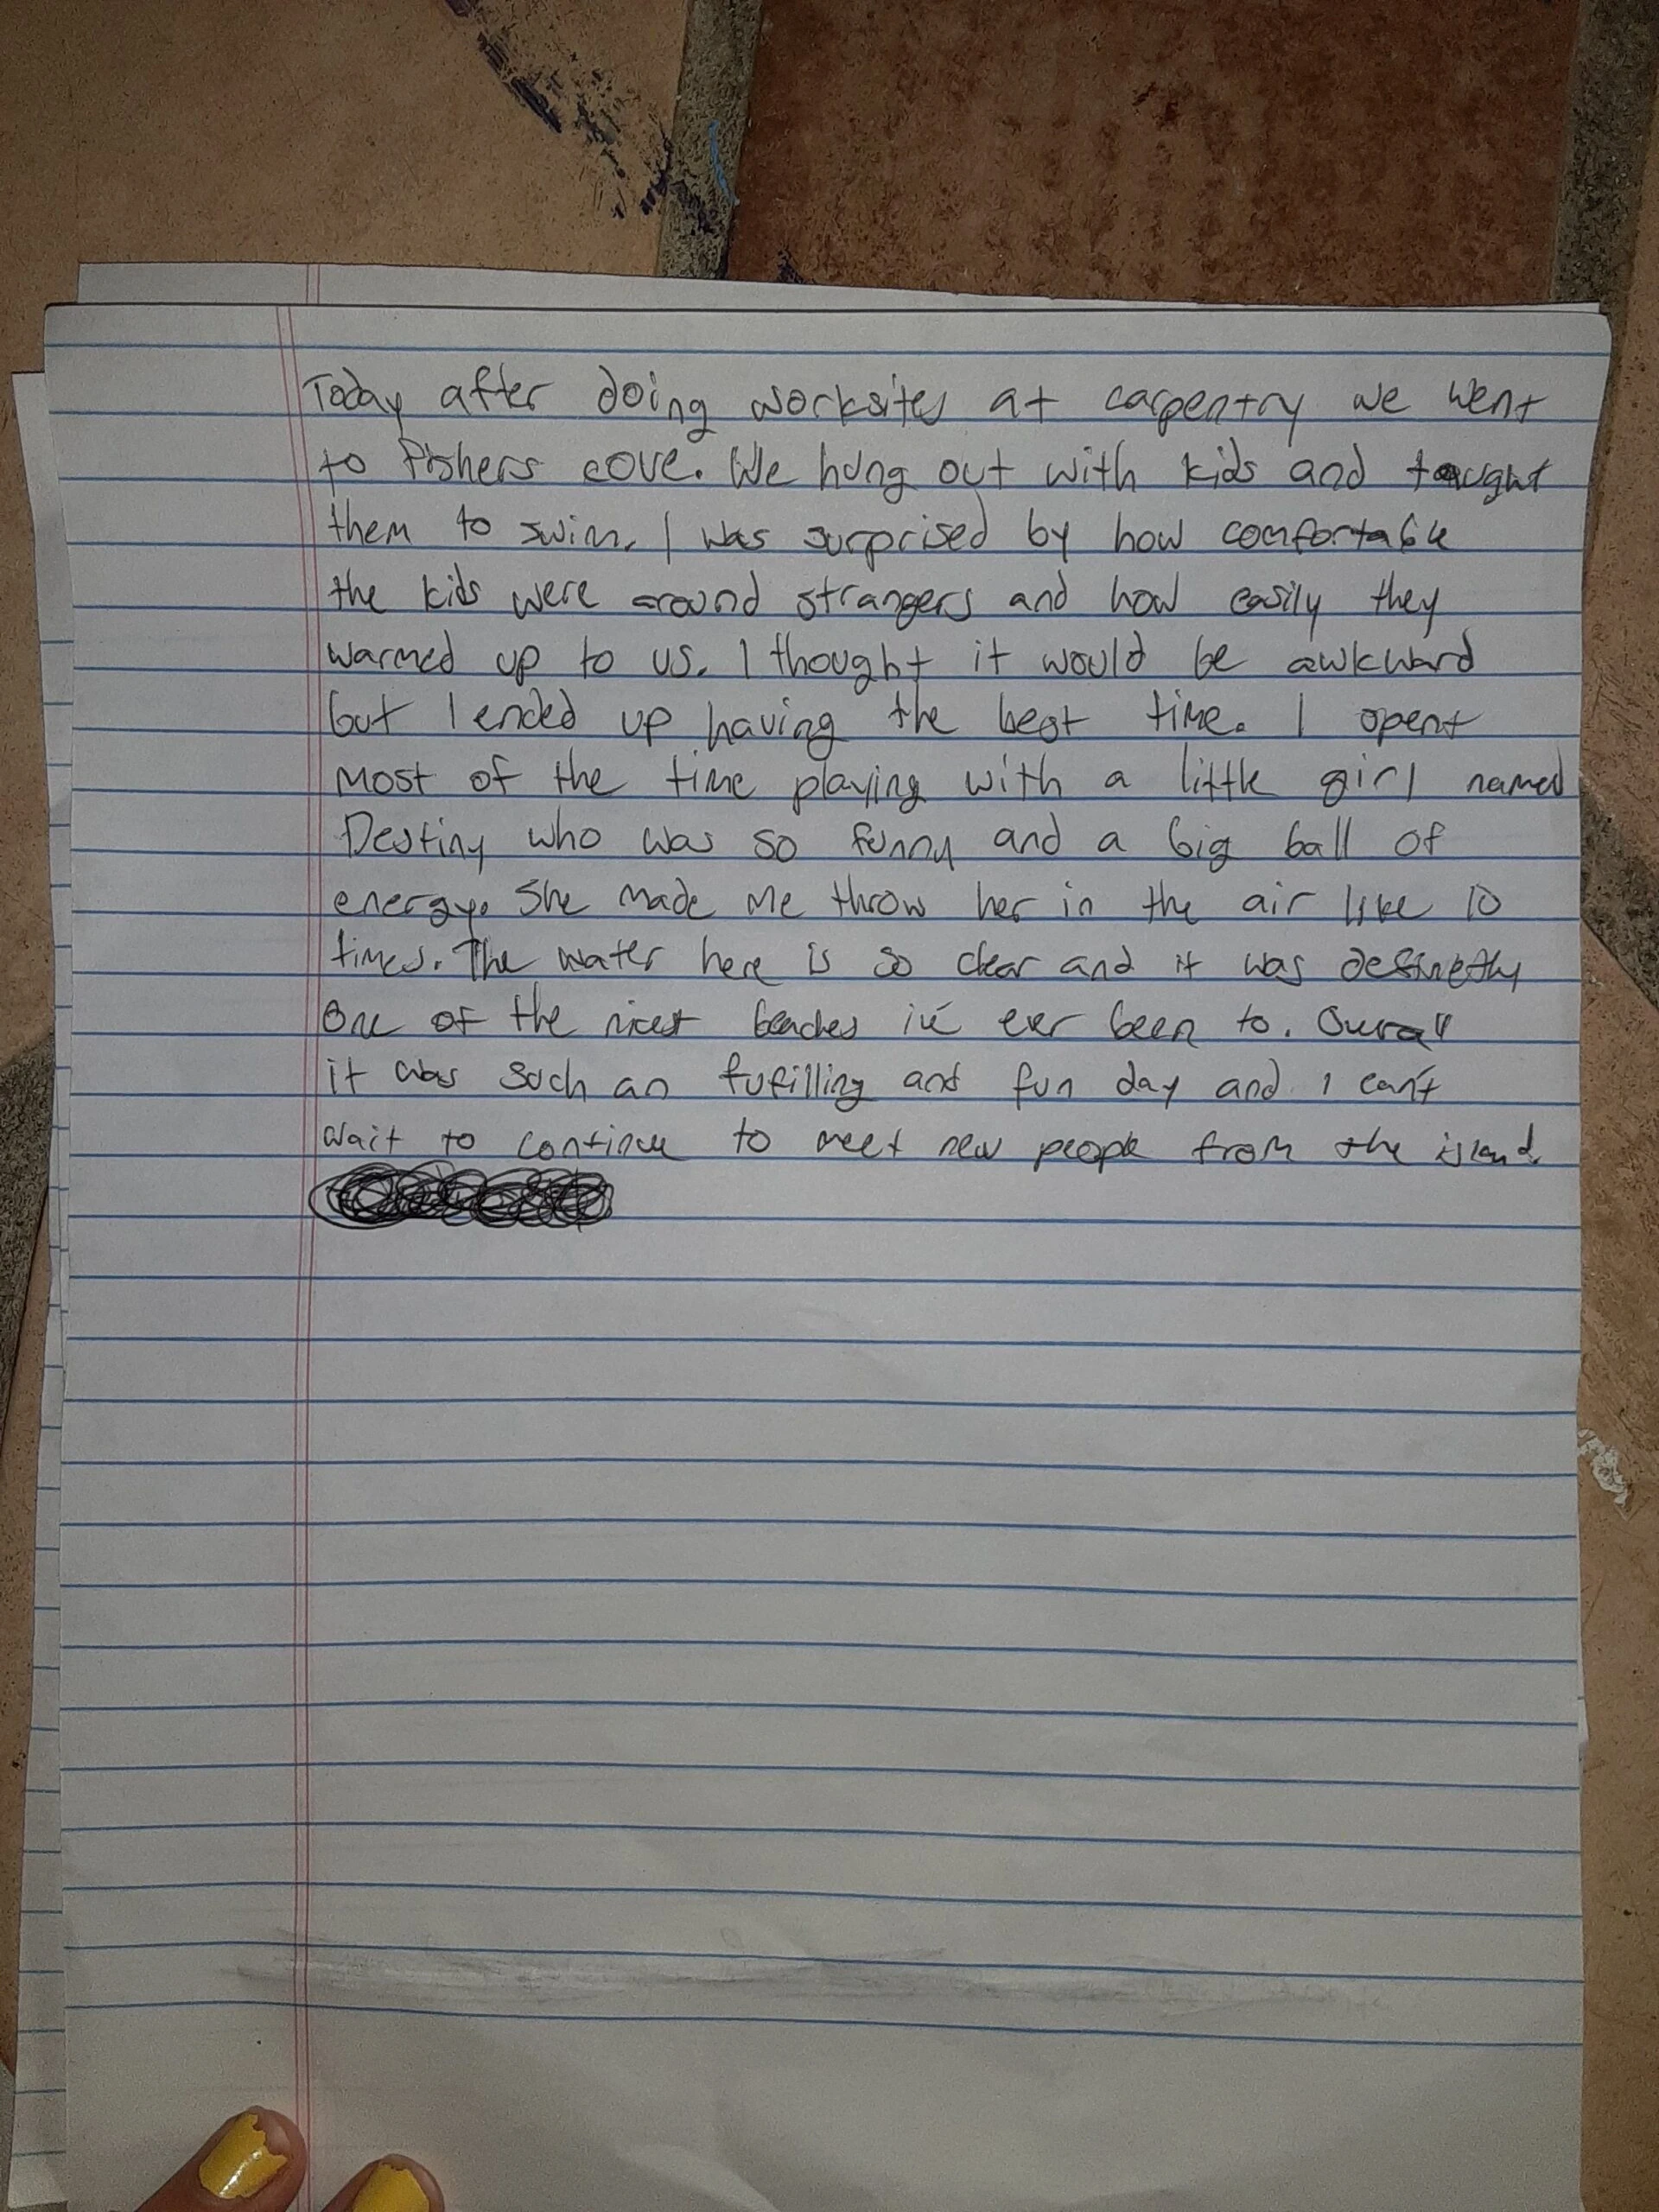 Today after doing worksites at carpentry we went
to Fishers cove. We hung out with kids and taught
them to swim. I was surprised by how comfortable
the kids were around strangers and how easily they
warmed up to us. I thought it would be awkward
but I ended up having the best time. I spent
most of the time playing with a little girl named
Destiny who was so funny and a big ball of
energy. She made me throw her in the air like 10
times. The water here is so clear and it was
one of the nicest beaches ive ever been to. Overall
it was such an fufilling and fun day and I can't
wait to continue to meet new people from the island.